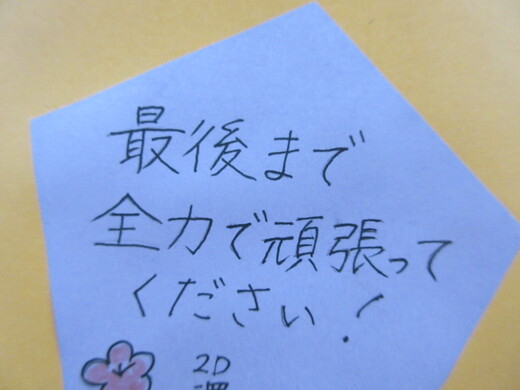 最後まで
全力で頑張って
ください!
2D